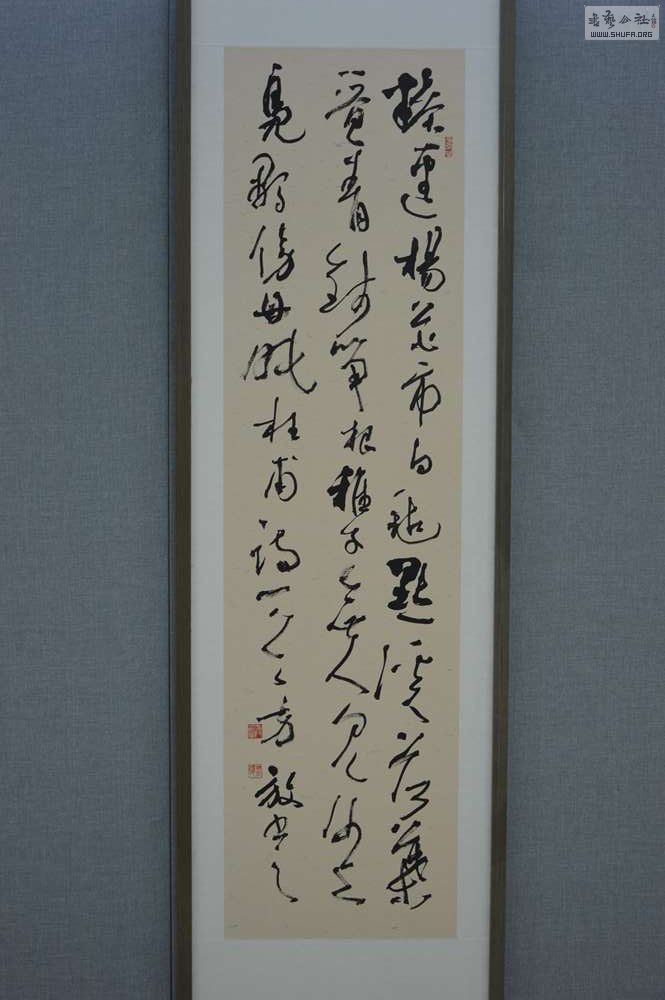 糝逕楊花布白氈點溪荷葉
疊青錢筍根稚子無人見沙上
鳧雛傍母眠杜甫詩一書之
书艺公社
WWW.SHUFA.ORG